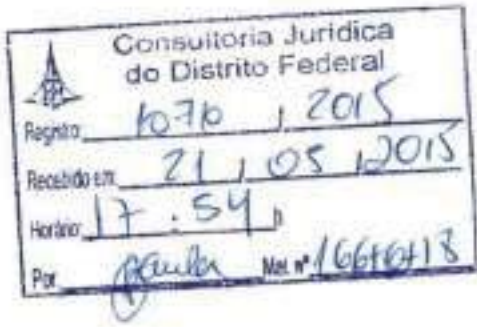 Consultoria Jurídica
do Distrito Federal
Registro: 1070 / 2015
Recebido em: 21 / 05 / 2015
Horário: 17 : 54 h
Por Paula Mat. nº